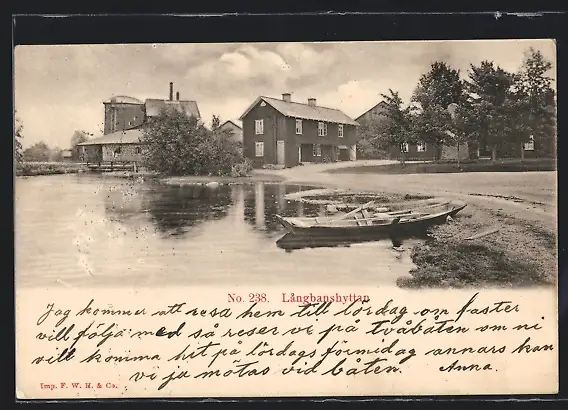 No. 238. Långbanshyttan
Jag kommer att resa hem till lördag om faster
vill följa med så reser vi på tvåbåten om ni
vill komma hit på lördags förmidag annars kan
vi ja motas vid båten. Anna.
Imp. F. W. H. & Co.